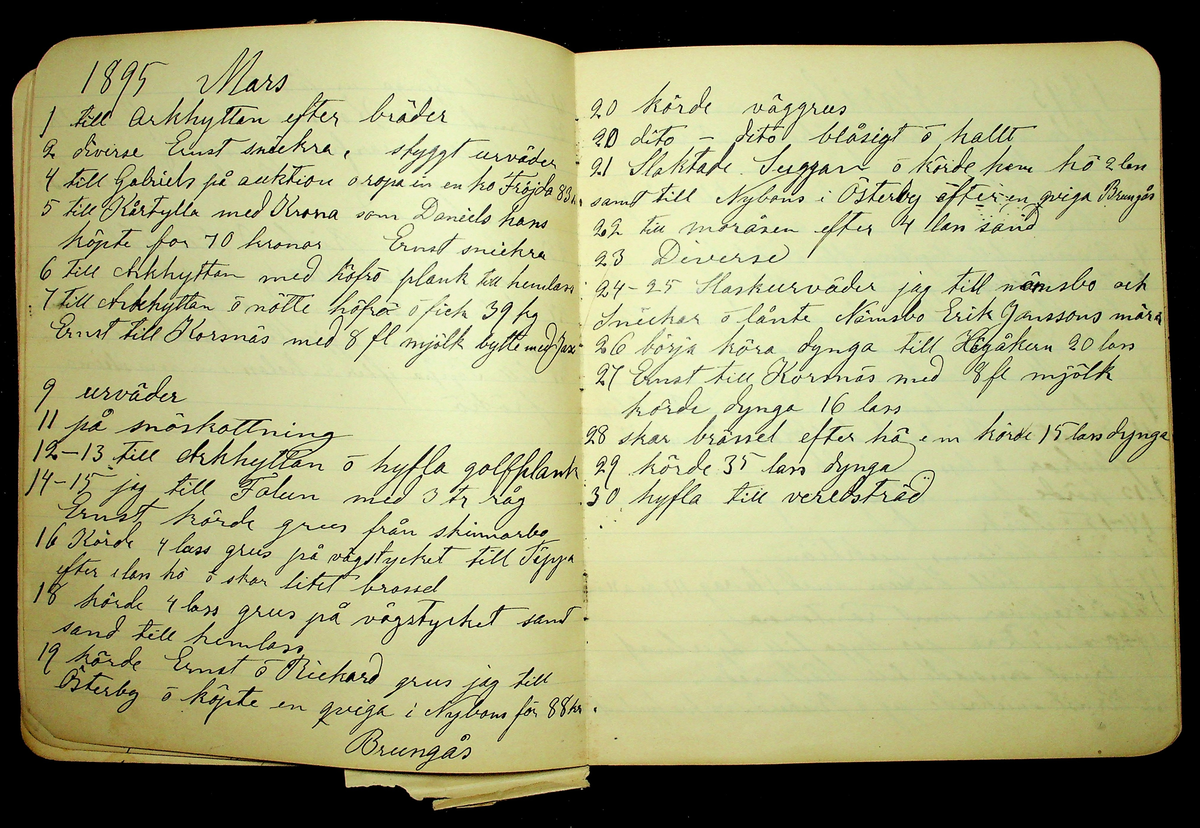 1895 Mars
1 till Arkhyttan efter bräder
2 diverse Ernst snickra, styggt urväder
4 till Gabriels på auktion ö ropa in en ko Fröjda 83 kr
5 till Kårtylla med Krona som Daniels hans
köpte for 70 kronor Ernst snickra
6 till Arkhyttan med höfrö plank till hemlass
7 till Arkhyttan ö nötte höfrö ö fick 39 kg
Ernst till Korsnäs med 8 fl mjölk bytte med
9 urväder
11 på snöskottning
12-13 till Arkhyttan ö hyfla golfplank
14-15 jag till Falun med 3 tr råg
Ernst körde grus från skinnarbo
16 Körde 4 lass grus på vägstycket till Täppa
efter 1 lass hö ö skar litet brassel
18 körde 4 lass grus på vägstycket samt
sand till hemlass
19 körde Ernst ö Rickard grus jag till
Österby ö köpte en qviga i Nybons för 88 kr.
Brungås
20 körde väggrus
20 dito - dito blåsigt ö kallt
21 Slaktade Suggan ö körde hem hö 2 lass
samt till Nybons i Österby efter en qviga Brungås
22 till moråsen efter 4 lass sand
23 Diverse
24-25 Haskurväder jag till nämsbo och
Snickar ö lånte Nämsbo Erik Janssons mära
26 börja köra dynga till Högåkern 20 lass
27 Ernst till Korsnäs med 8 fl mjölk
körde dynga 16 lass
28 skar brässel efter hä em körde 15 lass dynga
29 körde 35 lass dynga
30 hyfla till veredsträd